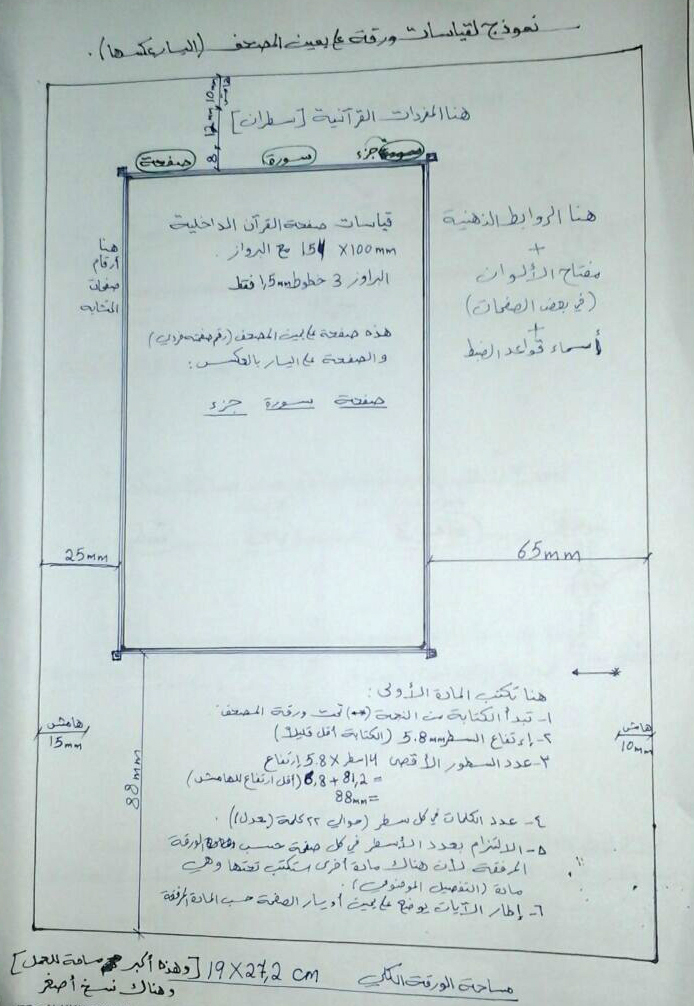 نموذج لقياسات ورقة على يمين المصحف (اليسار عكسها).
هامش
10mm
12mm
8
هنا المفردات القرآنية [سطران]
صفحة سورة جزء
هنا
أرقام
صفحات
المتشابه
قياسات صفحة القرآن الداخلية
100mm X 151 مع البرواز.
البراوز 3 خطوط 1,5mm فقط
هذه صفحة على يمين المصحف
والصفحة على اليسار بالعكس:
صفحة سورة جزء
هنا الروابط الذهنية
+
مفتاح الألوان
(في بعض الصفحات)
+
أسماء قواعد الضبط
25mm
65mm
هامش
15mm
هامش
10mm
88mm
هنا تكتب المادة الأولى:
١- تبدأ الكتابة من النجمة (*) تحت ورقة المصحف
٢- إرتفاع السطر 5.8mm (الكتابة أقل قليلاً)
٣- عدد السطور الأقصى 14 سطر X 5.8 إرتفاع
= 81,2 + 6,8 (أقل ارتفاع للهامش)
=88mm
٤- عدد الكلمات في كل سطر (حوالي ٢٢ كلمة (بعدل)).
٥- الالتزام بعدد الأسطر في كل صفحة حسب الورقة
المرفقة لأن هناك مادة أخرى ستكتب تحتها وهي
مادة (التفصيل الموضوعي).
٦- إطار الآيات يوضع على يمين أو يسار الصفحة حسب المادة المرفقة
مساحة الورقة الكلي 19X27,2 cm [وهذه أكبر مساحة للعمل]
وهناك نسخ أصغر